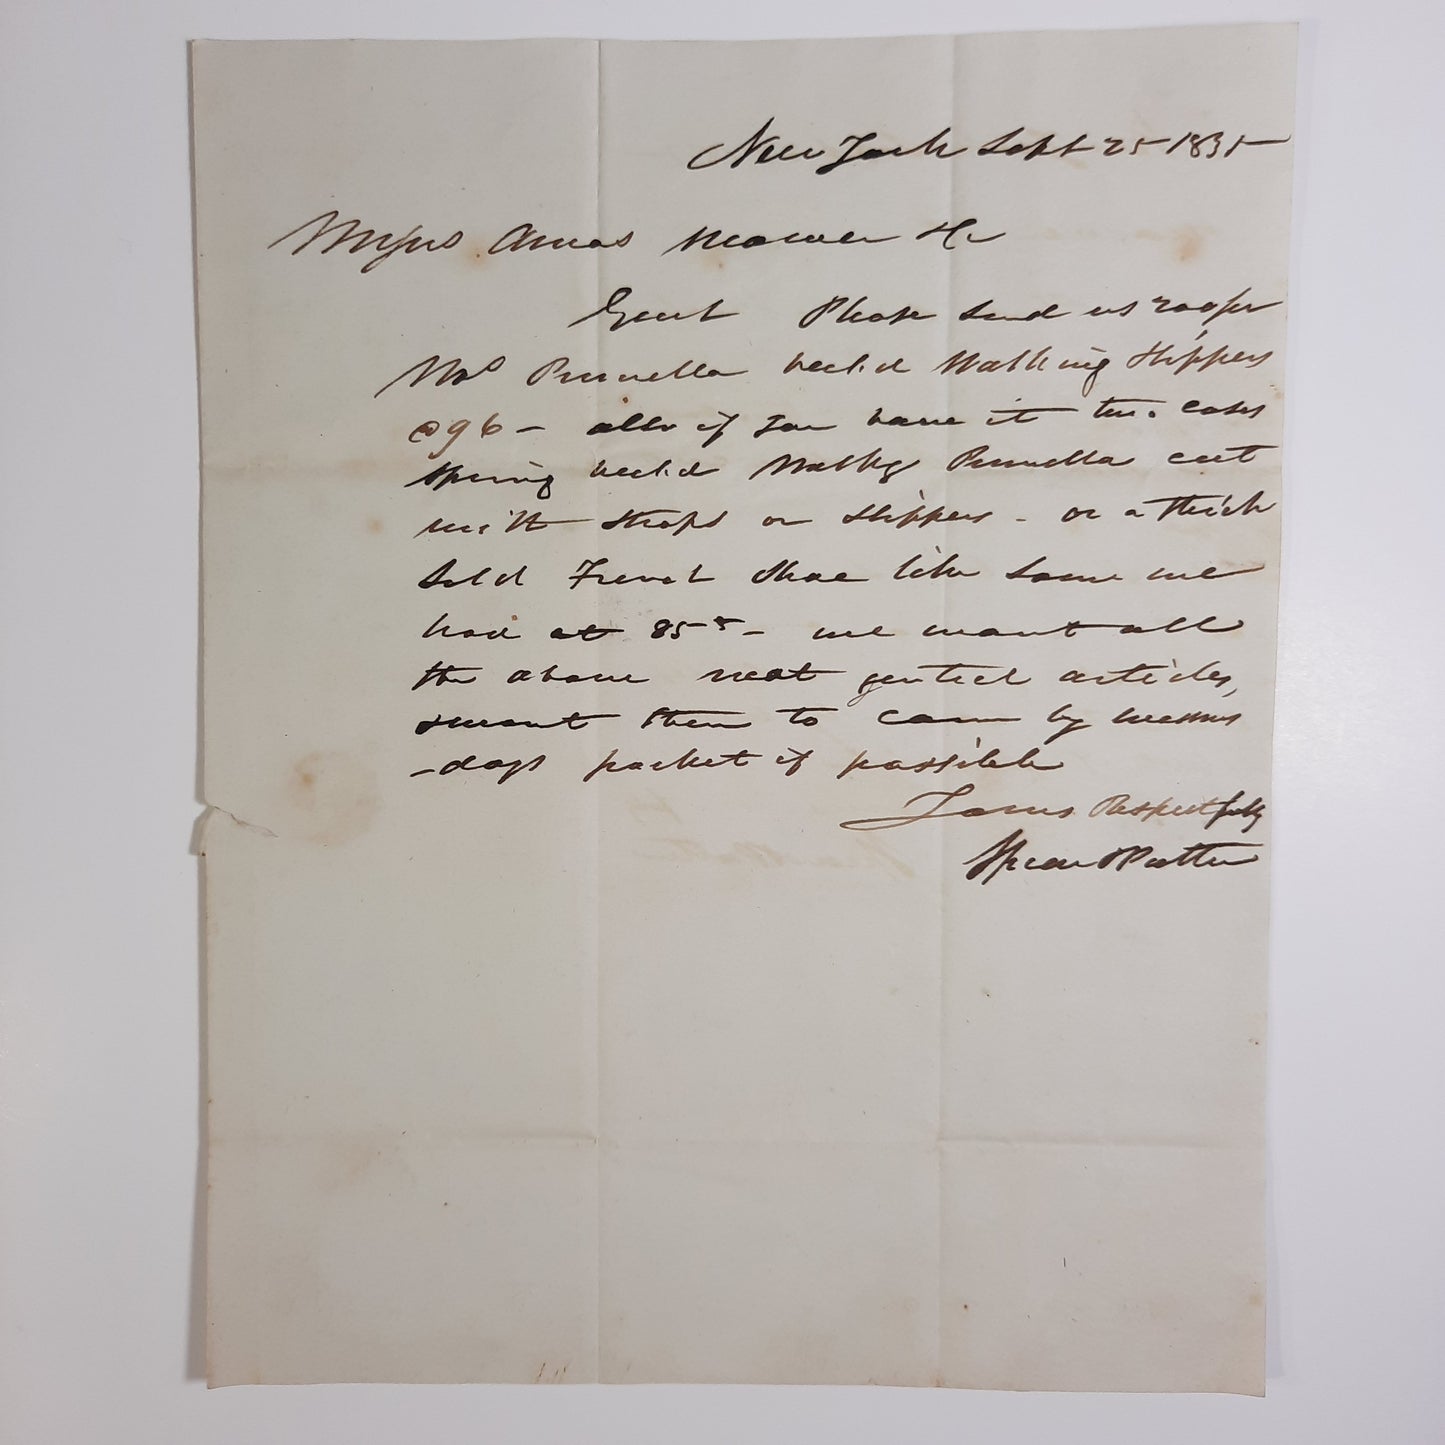 New York Sept 25 1835
Messrs Amos Mower &c
Gent Please send us 200 pr
Mos Prunella heel.d Walking Slippers
@ 96 – allso if you have it two cases
spring heel.d Walkg Prunella cut
with straps or slippers – or a thick
sol.d French shoe like some we
had at 85 – we want all
the above neat genteel articles,
& want them to come by wednes
-days packet if possible
Yours Respectfully
Spear & Patten